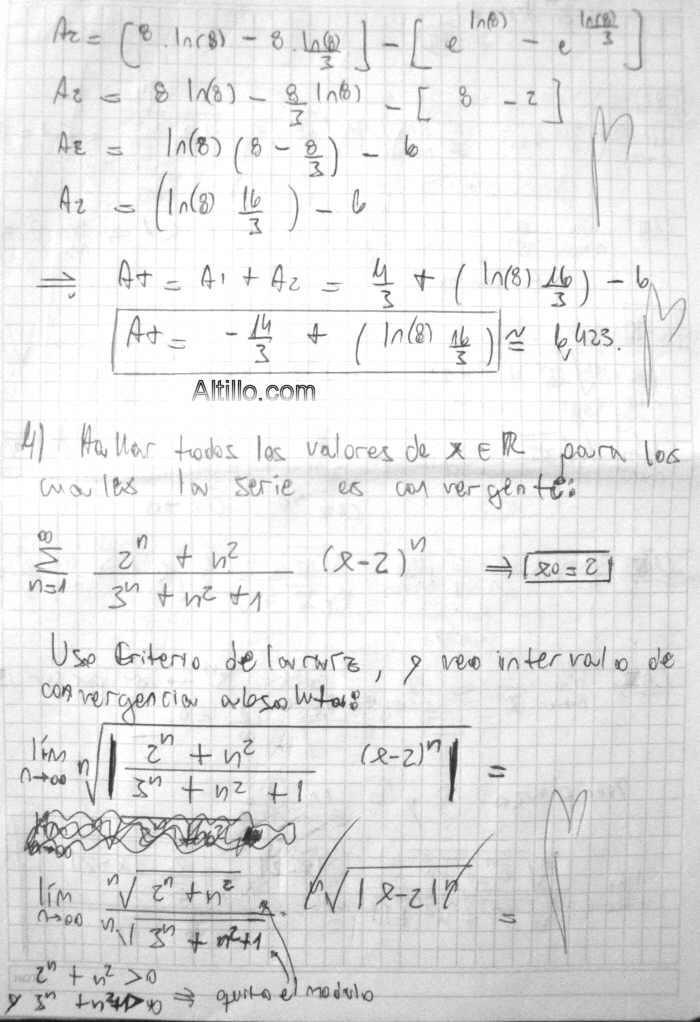 A2 = [8 . ln(8) - 8 . ln(8)/3] - [e^ln(8) - e^(ln(8)/3)]
A2 = 8 ln(8) - 8/3 ln(8) - [8 - 2]
A2 = ln(8) (8 - 8/3) - 6
A2 = (ln(8) 16/3) - 6
⟹ At = A1 + A2 = 4/3 + (ln(8) 16/3) - 6
At = -14/3 + (ln(8) 16/3) ≅ 6,423.
Altillo.com
4) Hallar todos los valores de x ∈ ℝ para los
cuales la serie es convergente:
∑_{n=1}^{∞} (2^n + n^2)/(3^n + n^2 + 1) (x-2)^n ⟹ x0 = 2
Uso Criterio de la raiz, y veo intervalo de
convergencia absoluta:
lím_{n→∞} ⁿ√|(2^n + n^2)/(3^n + n^2 + 1) (x-2)^n| =
lím_{n→∞} ⁿ√(2^n + n^2) / ⁿ√(3^n + n^2 + 1) . ⁿ√(|x-2|^n) =
2^n + n^2
3^n + n^2 + 1
quito el modulo